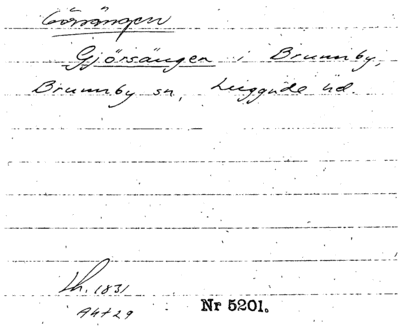 Görsängen
Gjörsängen i Brunnby,
Brunnby sn, Luggude hd.
Lh. 1831
A4+29
Nr 5201.